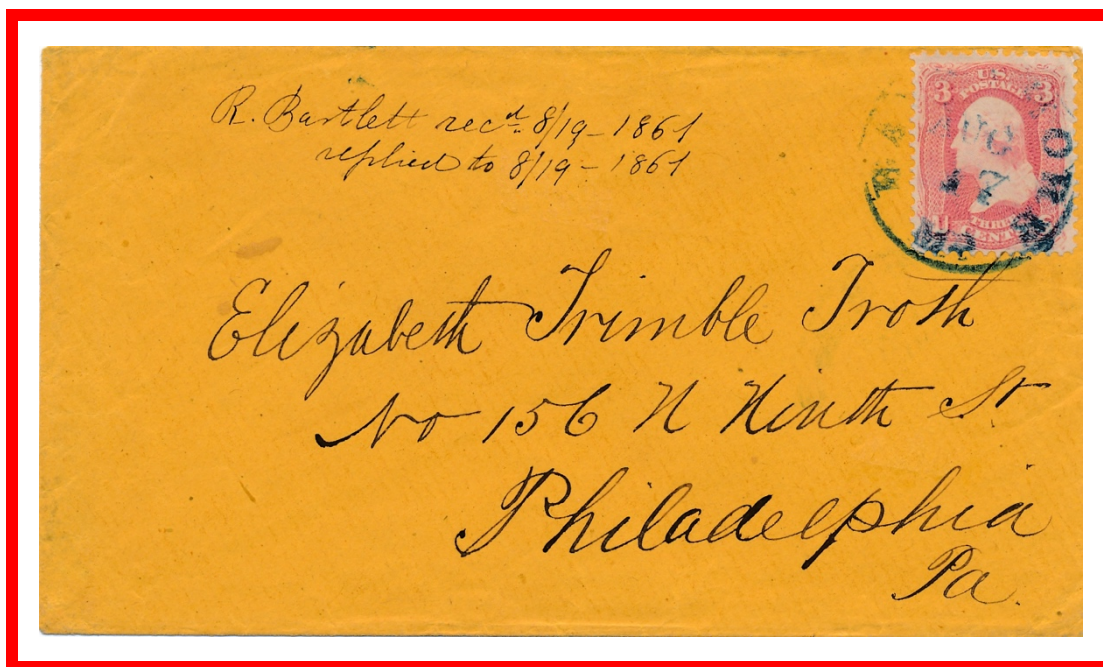 R. Bartlett recd 8/19-1861
replied to 8/19-1861
U.S.
3 POSTAGE 3
THREE
CENTS
Elizabeth Trimble Troth
No 156 N Ninth St
Philadelphia
Pa.